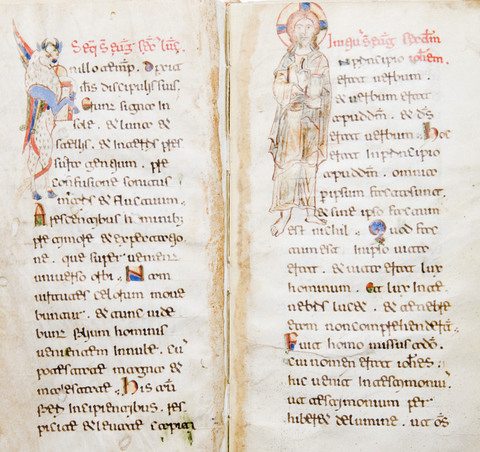 Seq̄ s̄ eūg sec̄ luc̄.
n illo temp̄. Dixit
ihs̄ discipulis suis.
Erunt signa in
sole. & luna &
stellis. & in terris pres
sura gentium. pre
confusione sonitus
maris & fluctuum.
Arescentibus hominib;
pre timore & expectatio
ne. que superuenient
uniuerso orbi. Nam
uirtutes celorum moue
buntur. & tunc uide
bunt filium hominis
uenientem in nube. cū
potestate magna &
maiestate. His aūt
fieri incipientibus. res
picite & leuate capita
s̄ eūg secdm̄
iohem.
n principio
erat uerbum.
& uerbum erat
apud dm̄. & ds̄
erat uerbum. Hoc
erat in principio
apud dm̄. omnia
per ipsum facta sunt.
& sine ipso factum
est nichil. Quod fac
tum est. in ipso uita
erat. & uita erat lux
hominum. Et lux in te
nebris lucet. & tenebre
eam non comprehender̄.
Fuit homo missus a do̅.
cui nomen erat iohes̄.
hic uenit in testimoniū.
ut testimonium per
hiberet de lumine. ut om̄s